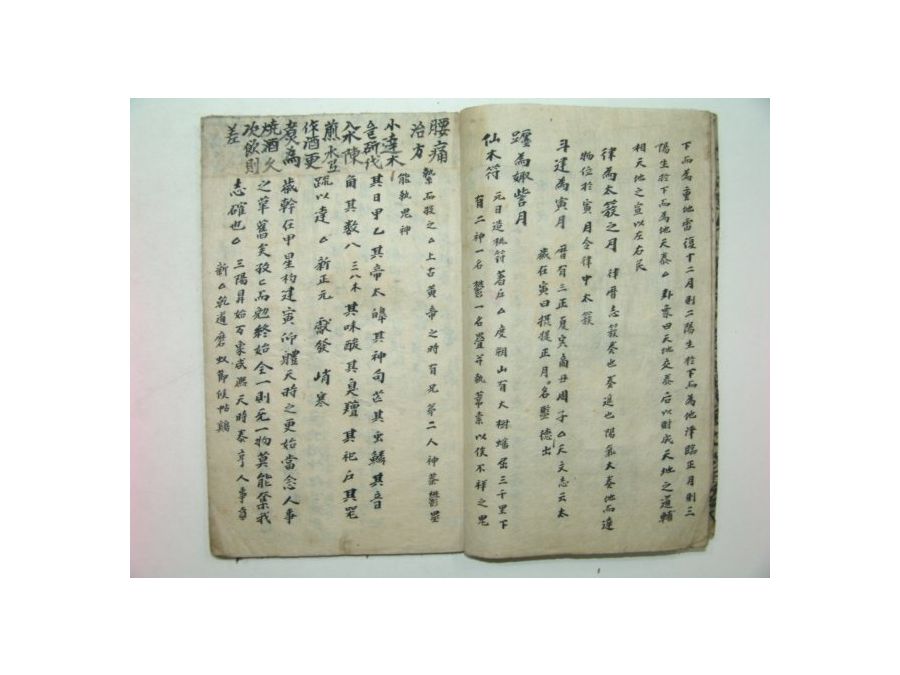 下而為重地雷復十二月則二陽生於下而為地澤臨正月則三
陽生於下而為地天泰 卦象曰天地交泰后以財成天地之道輔
相天地之宜以左右民
律為太簇之月 律曆志簇奏也奏進也陽氣大奏地而達
物位於寅月令律中太簇
斗建為寅月 曆有三正夏寅商丑周子 天文志云太
歲在寅曰攝提正月名監德出
躔為娵訾月
仙木符 元日造桃符著戶 度朔山有大樹蟠屈三千里下
有二神一名鬱一名壘并執葦索以伺不祥之鬼
縶而殺之 上古黃帝之時有兄弟二人神荼鬱壘
能執鬼神
其日甲乙其帝太皞其神句芒其虫鱗其音
角其數八 三八木 其味酸其臭羶其祀戶其
疏以達 新正元 獻發 峭寒
歲幹在甲星杓建寅仰體天時之更始當念人事
之革舊矣孜孜而勉終始全一則無一物莫能奪我
志確也 三陽昇始万彙咸熙天時泰亨人事
新 乾道 節候
腰痛
治方
小達木
陳
煎水
作酒更
煮為
燒酒久
次飲則
差